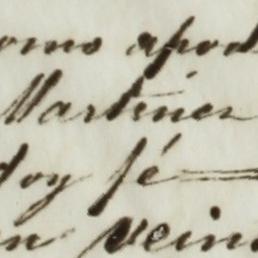 como apod
Martinez
doy fé
en vein